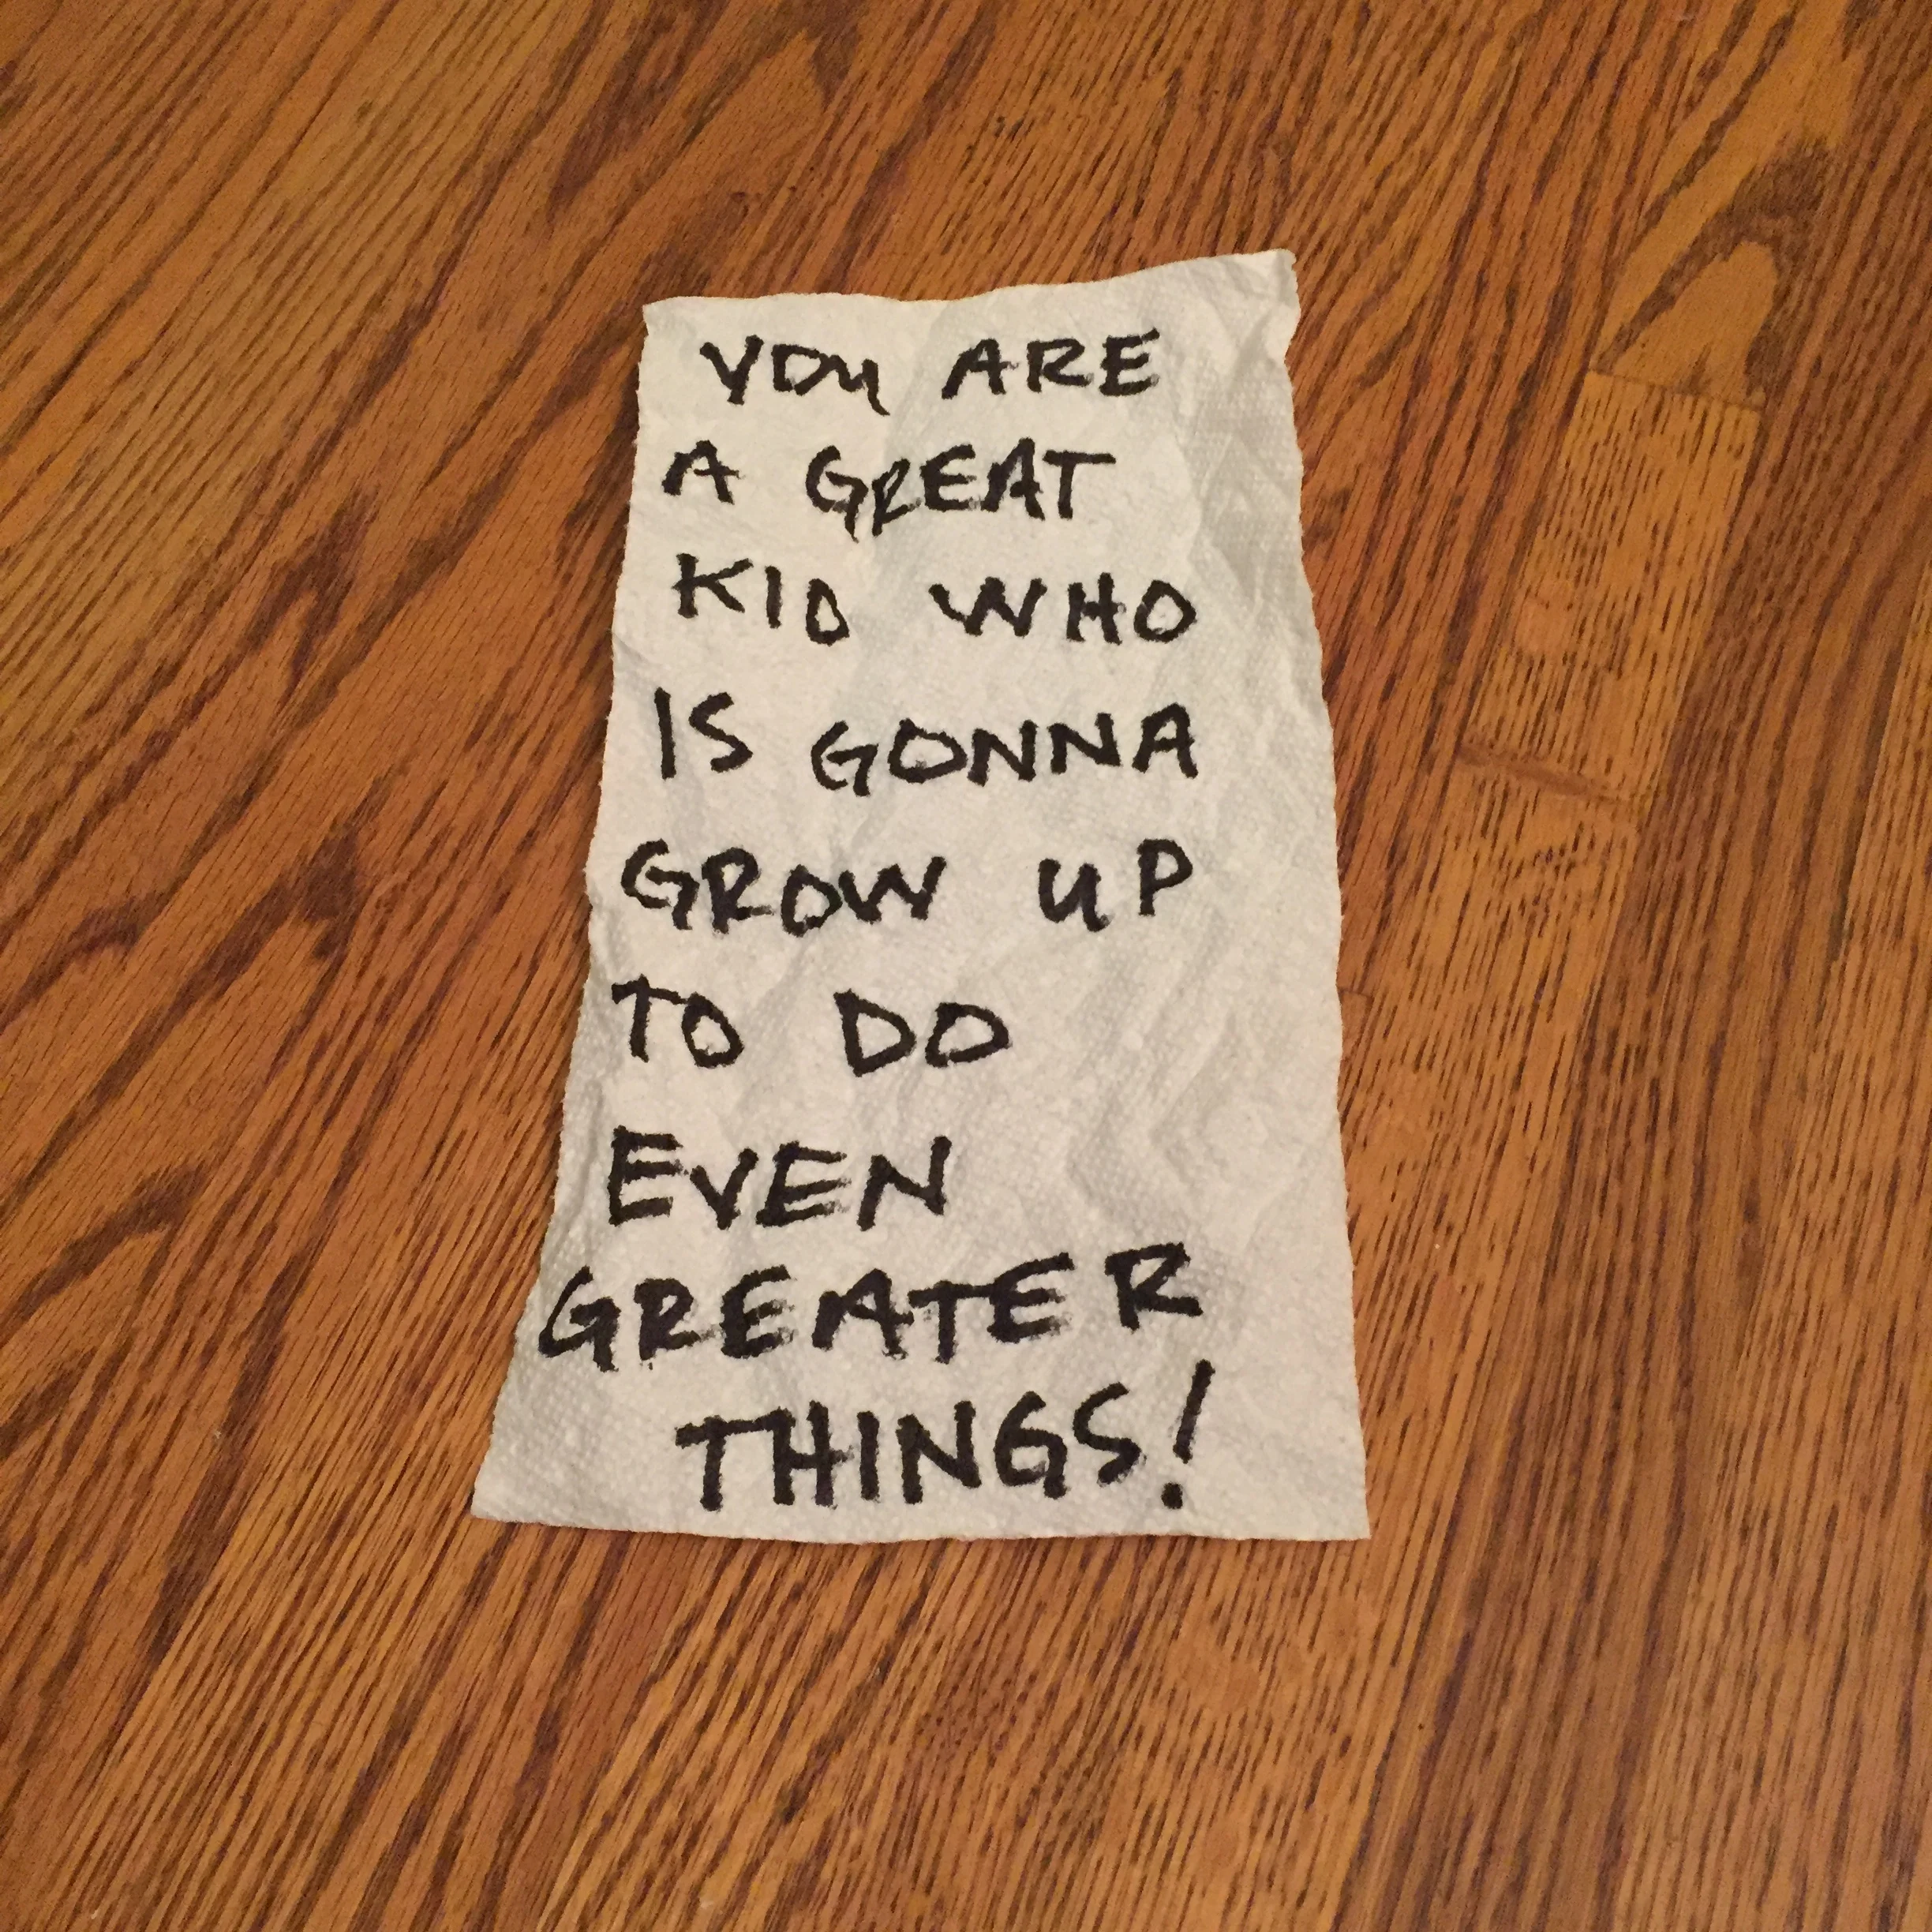 YOU ARE
A GREAT
KID WHO
IS GONNA
GROW UP
TO DO
EVEN
GREATER
THINGS!